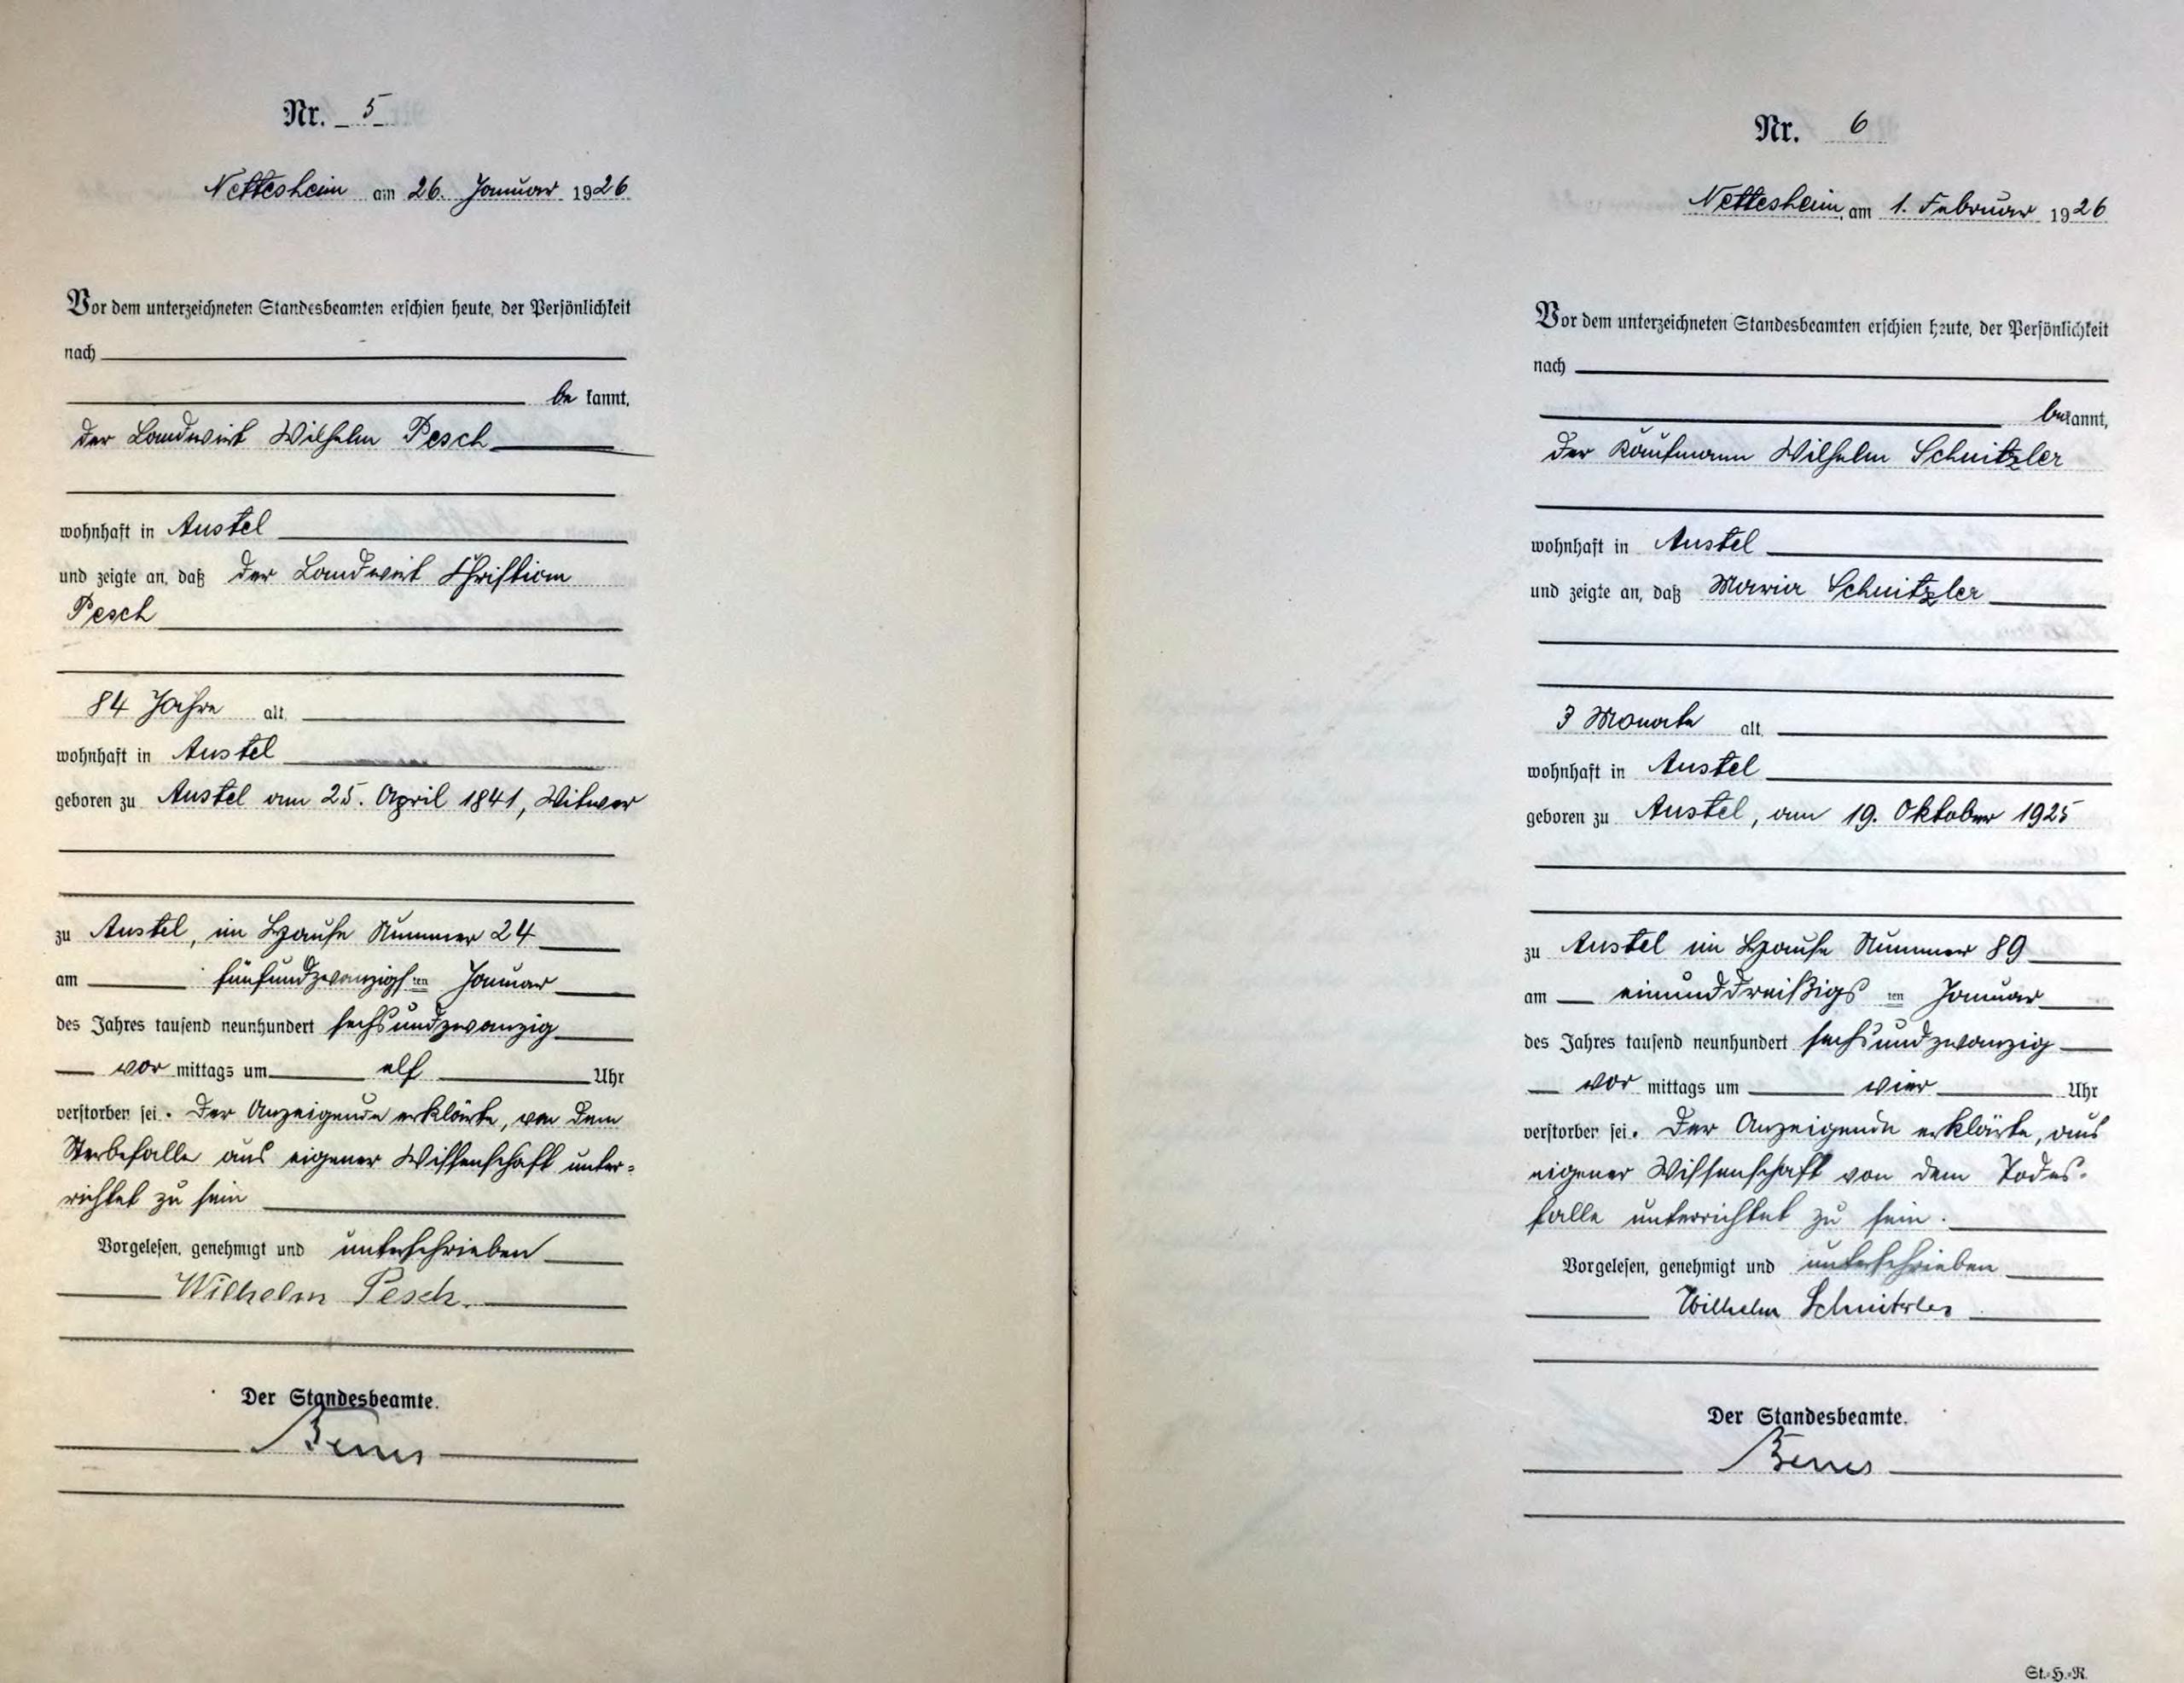 Nr. 5
Nettesheim am 26. Januar 1926
Vor dem unterzeichneten Standesbeamten erschien heute, der Persönlichkeit
nach
be kannt,
der Landwirt Wilhelm Pesch
wohnhaft in Anstel
und zeigte an, daß der Landwirt Christian
Pesch
84 Jahre alt,
wohnhaft in Anstel
geboren zu Anstel am 25. April 1841, Witwer
zu Anstel, im Hause Nummer 24
am fünfundzwanzigsten Januar
des Jahres tausend neunhundert sechsundzwanzig
vor mittags um elf Uhr
verstorben sei. Der Anzeigende erklärte, von dem
Sterbefalle aus eigener Wissenschaft unter=
richtet zu sein
Vorgelesen, genehmigt und unterschrieben
Wilhelm Pesch.
Der Standesbeamte.
Nr. 6
Nettesheim, am 1. Februar 1926
Vor dem unterzeichneten Standesbeamten erschien heute, der Persönlichkeit
nach
bekannt,
der Kaufmann Wilhelm Schnitzler
wohnhaft in Anstel
und zeigte an, daß Maria Schnitzler
3 Monate alt,
wohnhaft in Anstel
geboren zu Anstel, am 19. Oktober 1925
zu Anstel im Hause Nummer 89
am einunddreißigsten Januar
des Jahres tausend neunhundert sechsundzwanzig
vor mittags um vier Uhr
verstorben sei. Der Anzeigende erklärte, aus
eigener Wissenschaft von dem Todes-
falle unterrichtet zu sein.
Vorgelesen, genehmigt und unterschrieben
Wilhelm Schnitzler
Der Standesbeamte.
St.=H.=R.